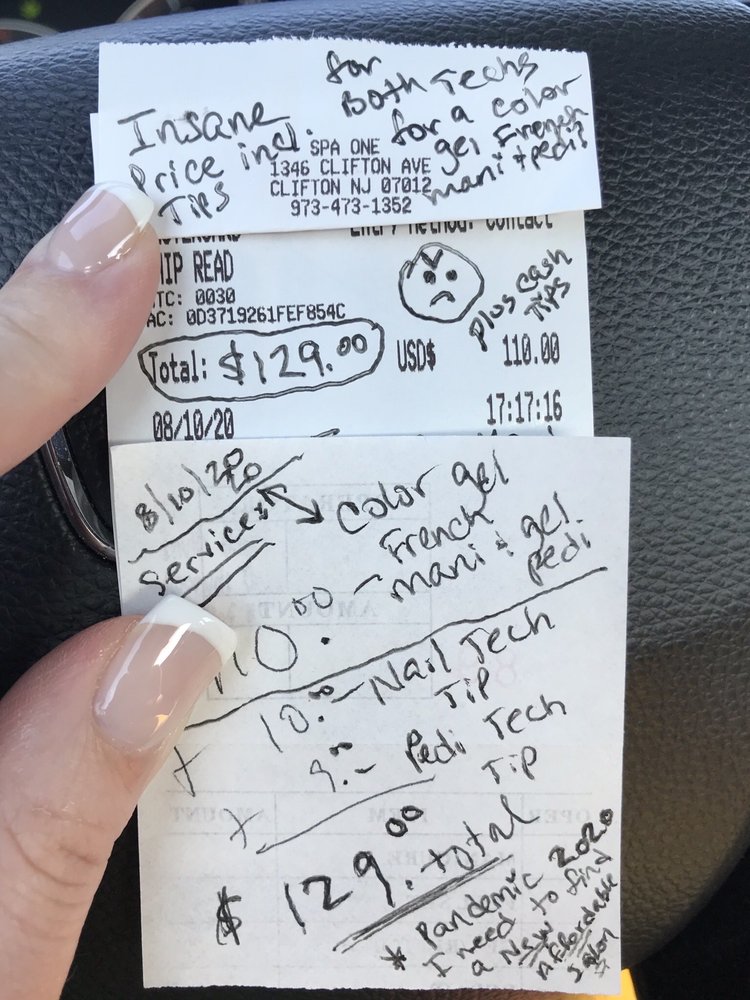 for
Both Techs
Insane for a color
Price incl. gel French
Tips mani + pedi?
SPA ONE
1346 CLIFTON AVE
CLIFTON NJ 07012
973-473-1352
Entry Method: Contact
HIP READ
TC: 0030
AC: 0D3719261FEF854C
plus cash
Tips
Total: $129.00 USD$ 110.00
08/10/20 17:17:16
8/10/2020
Services
Color gel
French
110.00 - mani + gel
pedi
+ 10.00 - Nail Tech
Tip
+ 9.- Pedi Tech
Tip
$ 129.00 total
* Pandemic 2020
I need to find
a New
Affordable
Salon *